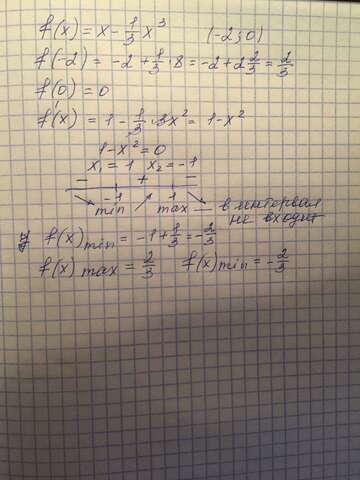 f(x) = x - 1/3 x³ (-2; 0)
f(-2) = -2 + 1/3 · 8 = -2 + 2 2/3 = 2/3
f(0) = 0
f'(x) = 1 - 1/3 · 3x² = 1 - x²
1 - x² = 0
x₁ = 1 x₂ = -1
- + -
-1 1
min max — в интервал
не входит
f(x)min = -1 + 1/3 = -2/3
f(x)max = 2/3 f(x)min = -2/3